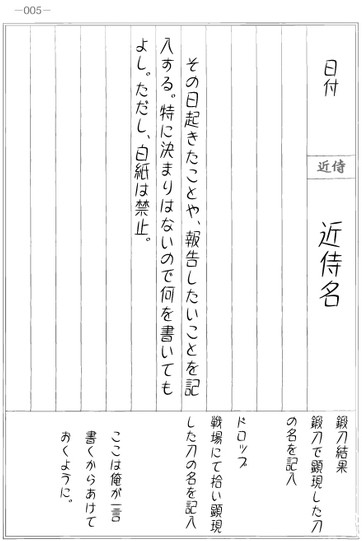 ―005―
日付
近侍
近侍名
その日起きたことや、報告したいことを記
入する。特に決まりはないので何を書いても
よし。ただし、白紙は禁止。
鍛刀結果
鍛刀で顕現した刀
の名を記入
ドロップ
戦場にて拾い顕現
した刀の名を記入
ここは俺が一言
書くからあけて
おくように。